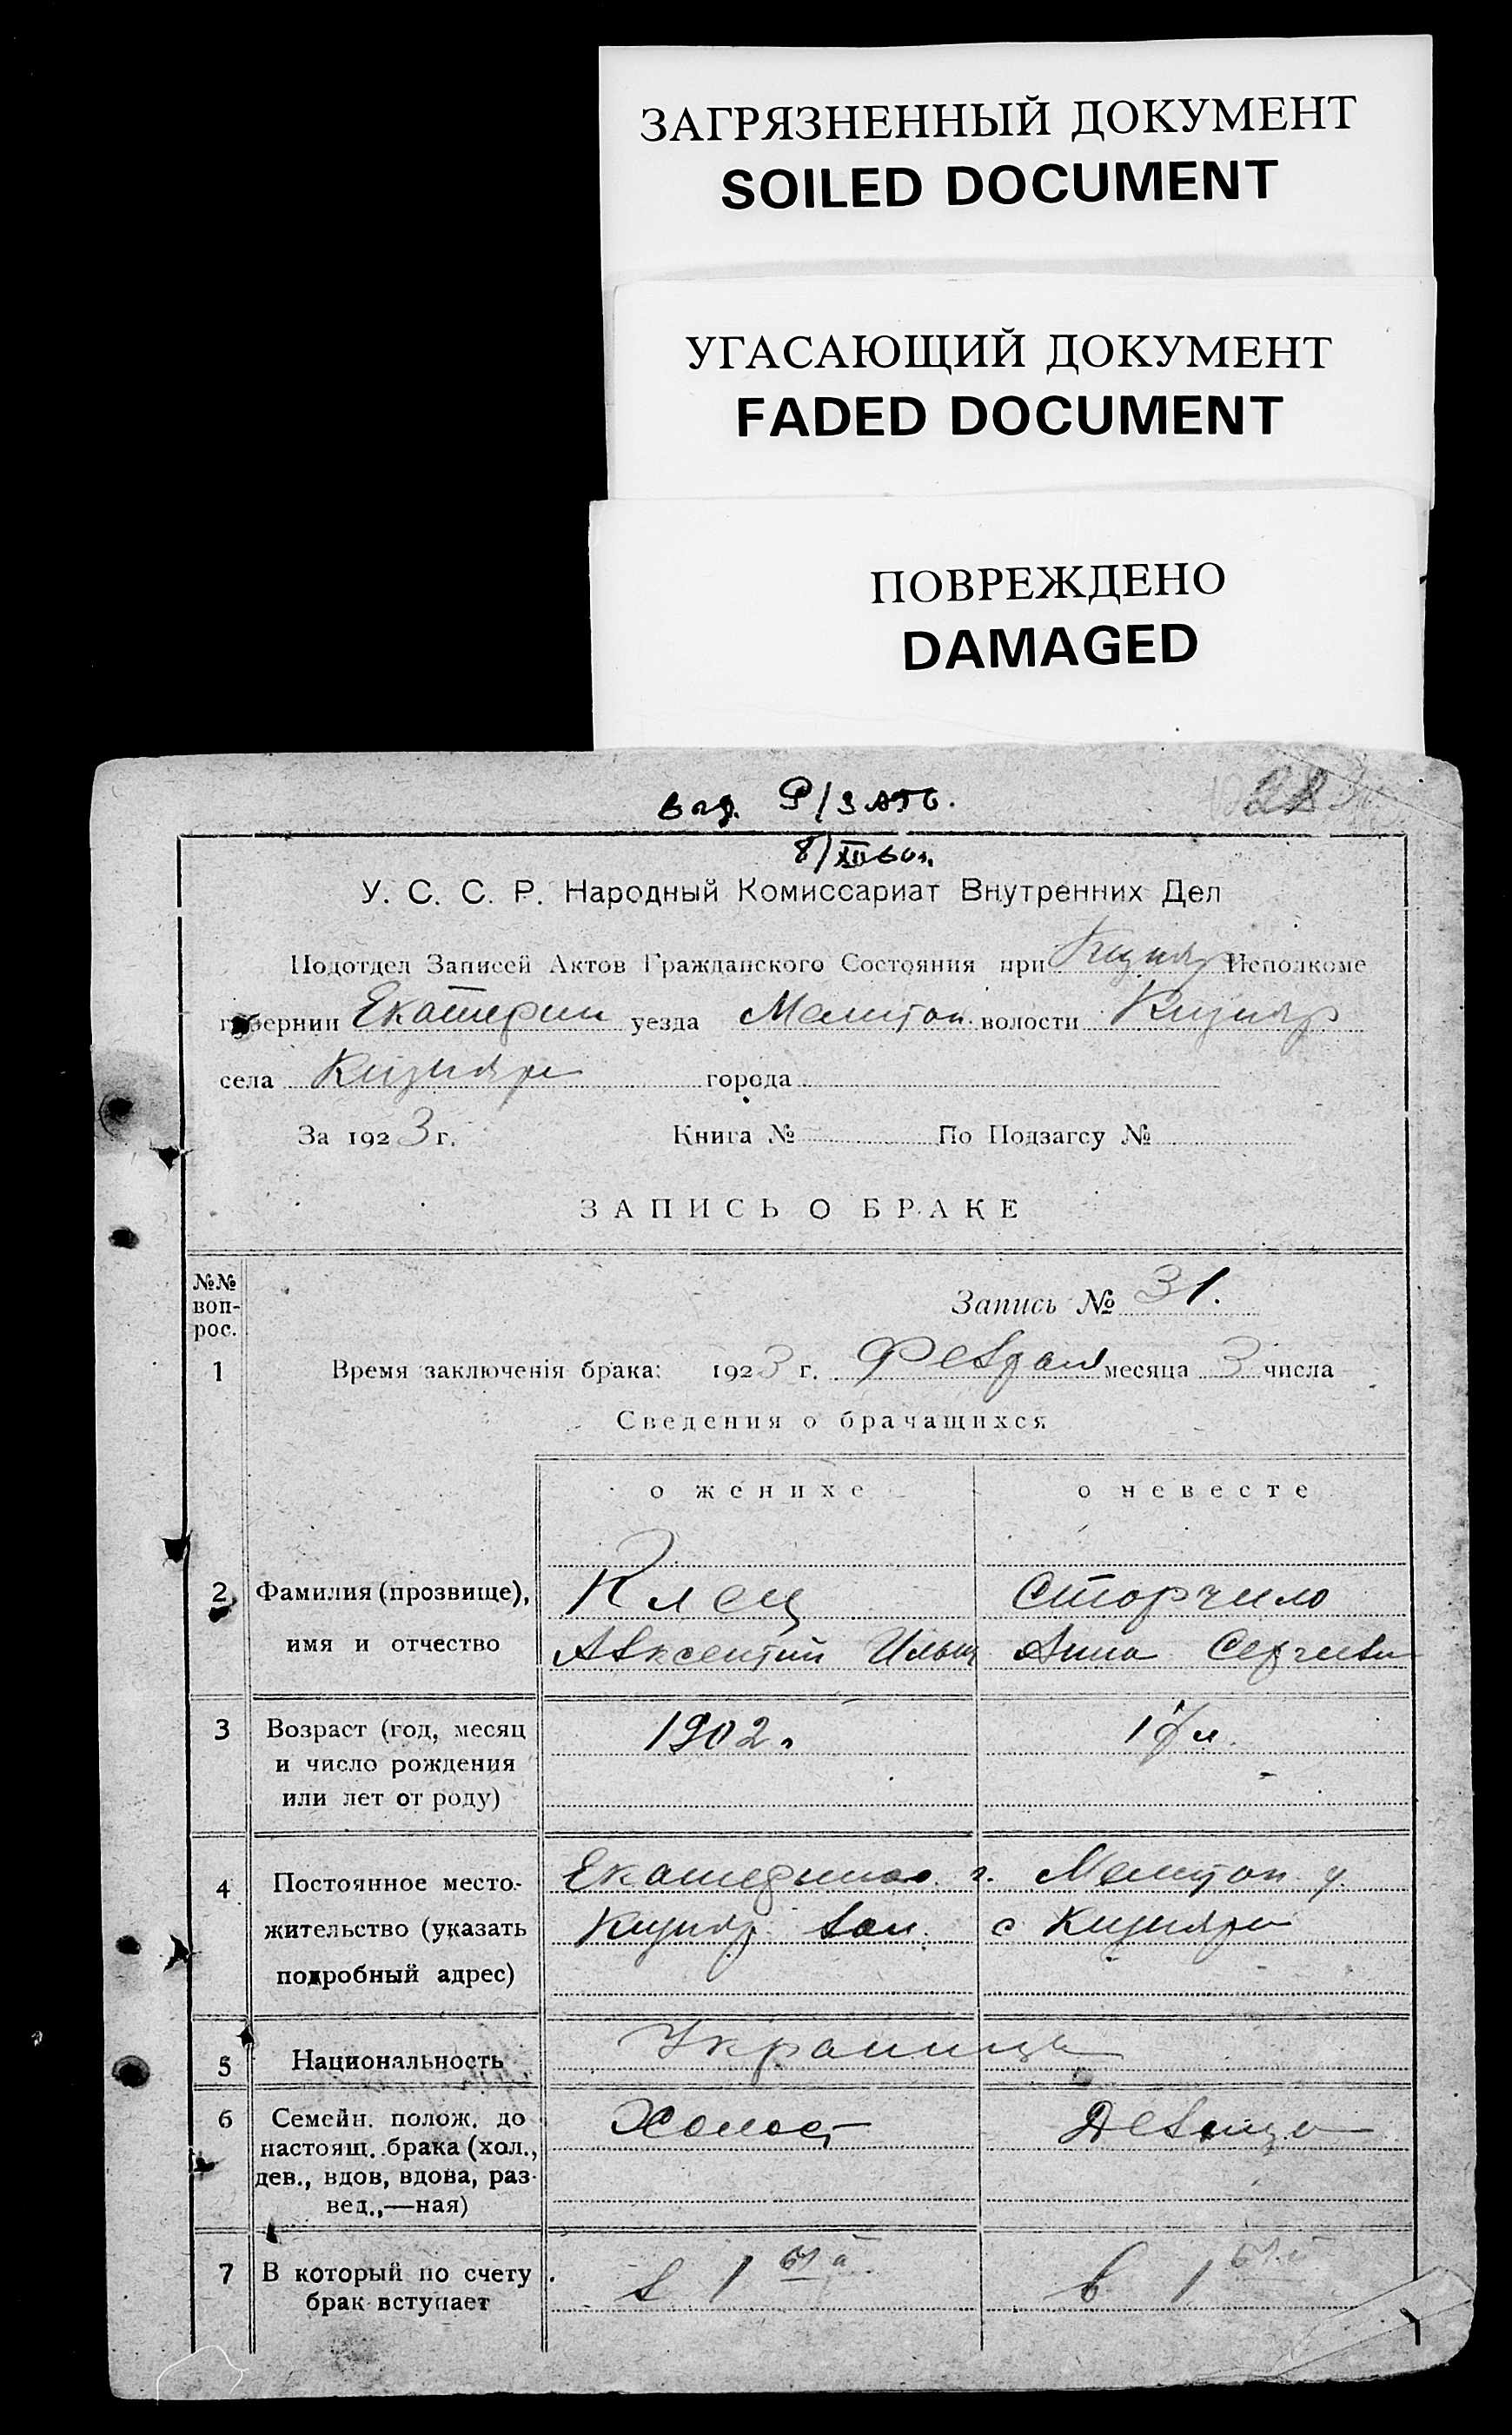 ЗАГРЯЗНЕННЫЙ ДОКУМЕНТ
SOILED DOCUMENT
УГАСАЮЩИЙ ДОКУМЕНТ
FADED DOCUMENT
ПОВРЕЖДЕНО
DAMAGED
8/XII 60г.
У. С. С. Р. Народный Комиссариат Внутренних Дел
Подотдел Записей Актов Гражданского Состояния при Кизияр Исполкоме
губернии Екатерин уезда Мелитоп. волости Кизияр
села Кизияри города
За 1923 г. Книга № По Подзагсу №
ЗАПИСЬ О БРАКЕ
№№ воп-рос.
Запись № 31.
1 Время заключенія брака: 1923 г. Феврал месяца 3 числа
Сведения о брачащихся
о женихе о невесте
2 Фамилия (прозвище), Клец Сторчило
имя и отчество Авксентий Ильич Анна Сергиевн
3 Возраст (год, месяц 1902г
и число рождения
или лет от роду)
4 Постоянное место- Екатеринос. г. Мелитоп у.
жительство (указать Кизияр вол. с Кизияри
подробный адрес)
5 Национальность Украинцы
6 Семейн. полож. до Холост Девица
настоящ. брака (хол.,
дев., вдов, вдова, раз-
вед.,—ная)
7 В который по счету в 1 ый в 1 ый
брак вступает